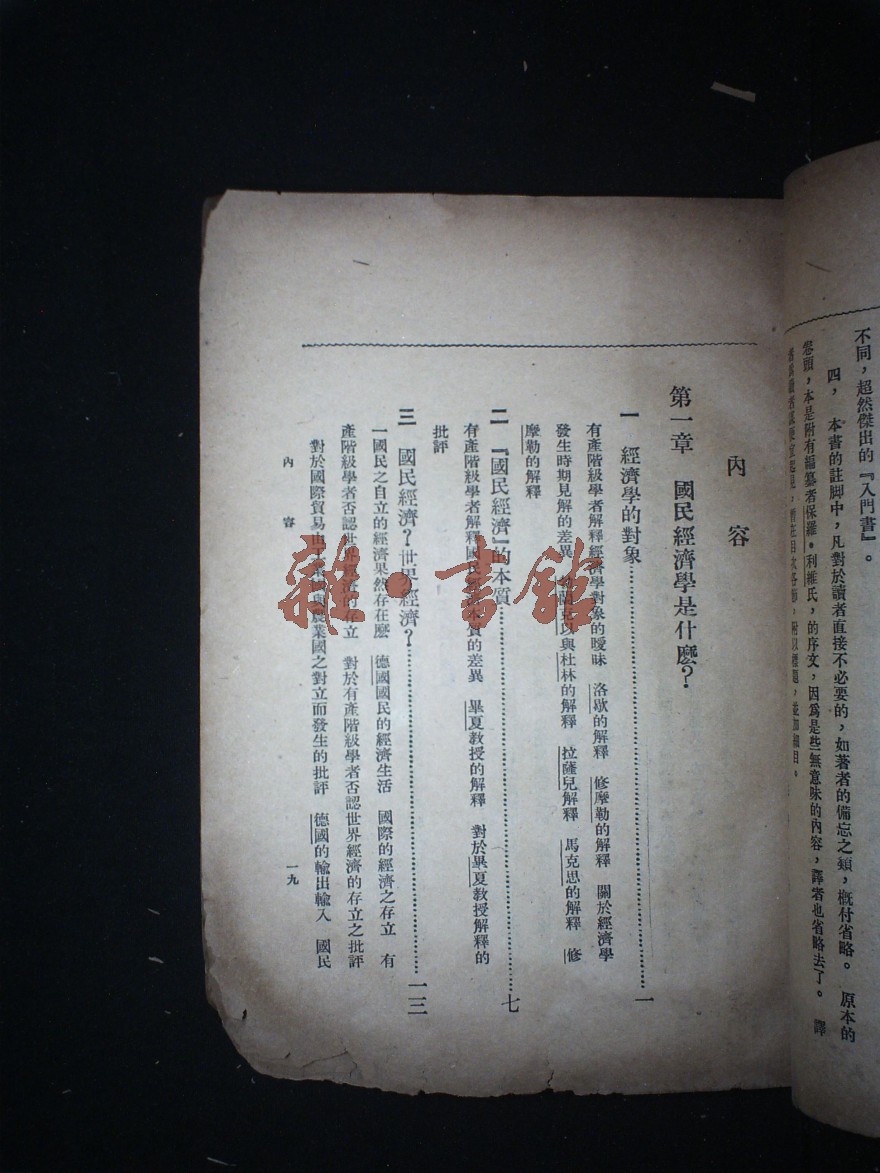 不同，超然傑出的『入門書』。
四， 本書的註脚中，凡對於讀者直接不必要的，如著者的備忘之類，概付省略。 原本的
卷頭，本是附有編纂者保羅·利維氏，的序文，因爲是些無意味的內容，譯者也省略去了。 譯
在目次各節，附以標題，並加細目。
內容
第一章 國民經濟學是什麼？
一 經濟學的對象…………一
有產階級學者解釋經濟學對象的曖昧 洛歇的解釋 修摩勒的解釋 關於經濟學
發生時期見解的差異 以與杜林的解釋 拉薩兒解釋 馬克思的解釋 修
摩勒的解釋
二 『國民經濟』的本質…………七
有產階級學者解釋國民經濟本質的差異 畢夏教授的解釋 對於畢夏教授解釋的
批評
三 國民經濟？世界經濟？…………一三
一國民之自立的經濟果然存在麼 德國國民的經濟生活 國際的經濟之存立 有
產階級學者否認世界經濟的存立 對於有產階級學者否認世界經濟的存立之批評
對於國際貿易由工業國與農業國之對立而發生的批評 德國的輸出輸入 國民
內容
一九
雜·書館